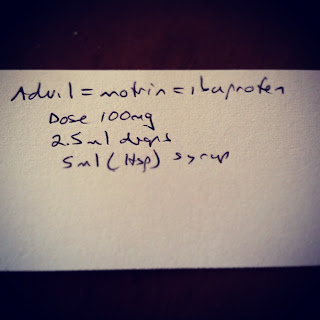 Advil = motrin = ibuprofen
Dose 100mg
2.5ml drops
5ml (1tsp) syrup